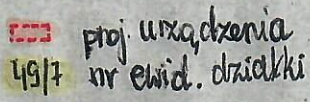 proj. urządzenia
49/7 nr ewid. działki